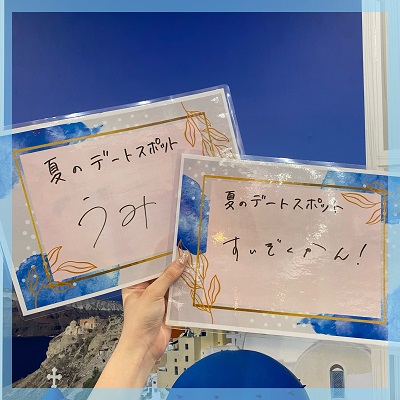 夏のデートスポット
うみ
夏のデートスポット
すいぞくかん!